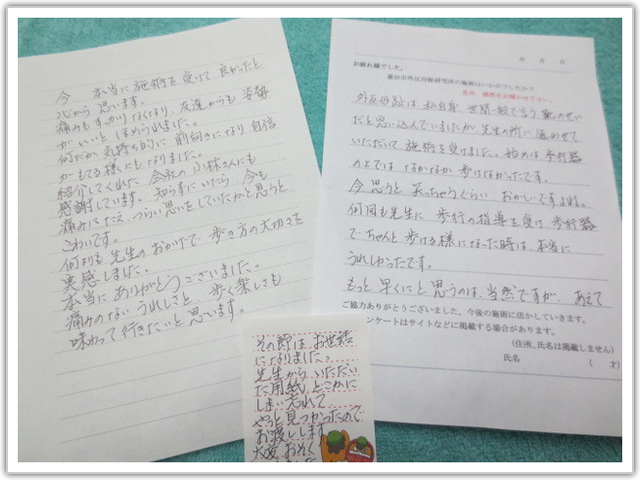 今、本当に施術を受けて良かったと
心から思います。
痛みもすっかりなくなり、友達からも姿勢
がいいとほめられました。
何だか気持ち的に前向きになり自信
がもてる様にもなりました。
紹介してくれた会社の小林さんにも
感謝しています。知らずにいたら今も
痛みにたえ、つらい思いをしていたかと思うと
こわいです。
何よりも先生のおかげで歩き方の大切さを
実感しました。
本当にありがとうございました。
痛みのないうれしさと歩く楽しさも
味わって行きたいと思います。
年 月 日
お疲れ様でした。
市外反母趾研究所の施術はいかがでしたか?
是非、感想をお聞かせ下さい。
外反母趾は私自身世間一般で言う靴のせい
だと思い込んでいましたが、先生の所に通わせて
いただいて施術を受けました。始めは歩行器
の上ではなかなか歩けなかったです。
今思うと笑っちゃうくらいおかしいですよね。
何回も先生に歩行の指導を受け歩行器
でちゃんと歩ける様になった時は本当に
うれしかったです。
もっと早くにと思うのは、当然ですが、あえて
ご協力ありがとうございました。今後の施術に活かしていきます。
ンケートはサイトなどに掲載する場合があります。
(住所、氏名は掲載しません)
氏名 ( 才)
その節は、お世話
になりました。
先生からいただい
た用紙、どこかに
しまい忘れて
やっと見つかったので
お渡しします
大変おそく